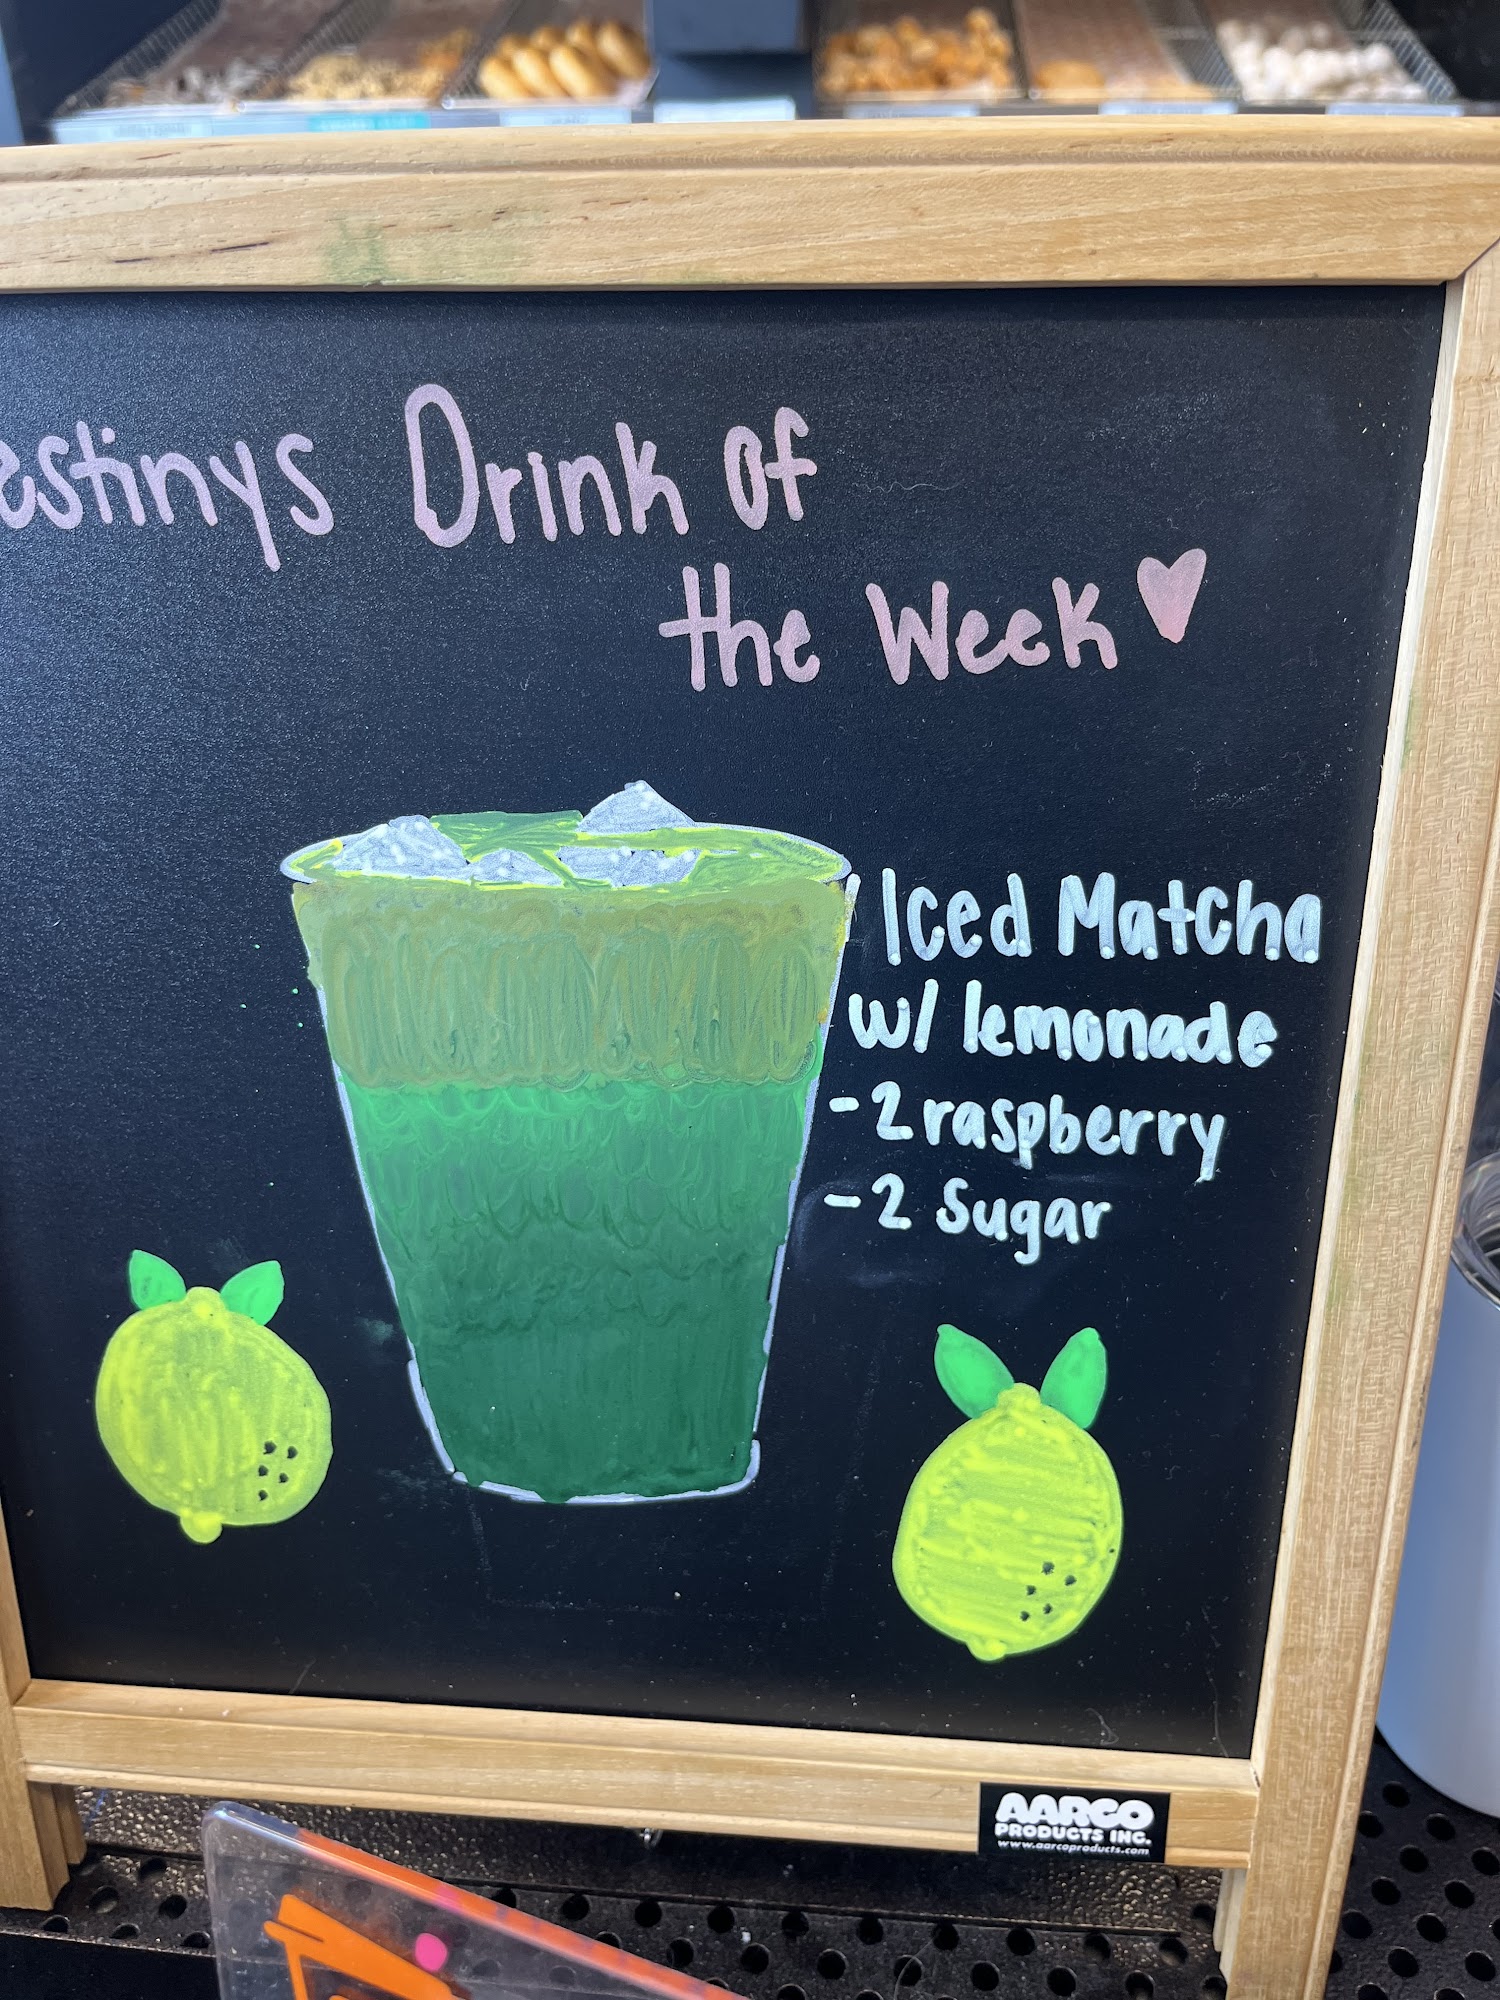 estinys Drink of
the Week
Iced Matcha
w/ lemonade
- 2 raspberry
- 2 Sugar
AARCO
PRODUCTS INC.
www.aarcoproducts.com